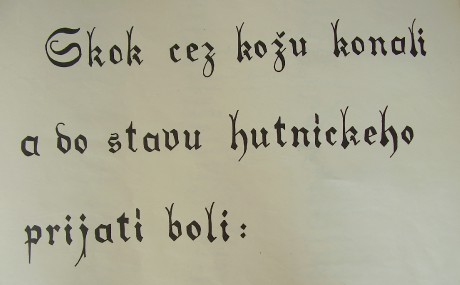 Skok cez kožu konali
a do stavu hutnickeho
prijati boli: